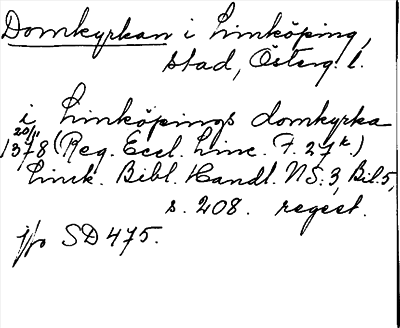 Domkyrkan i Linköping,
stad, Österg. l.
i Linköpings domkyrka
20/11
1378 (Reg. Eccl. Linc. F. 27k.)
Linck. Bibl. Handl. NS. 3, Bil. 5,
s. 208. regest.
SD 475.